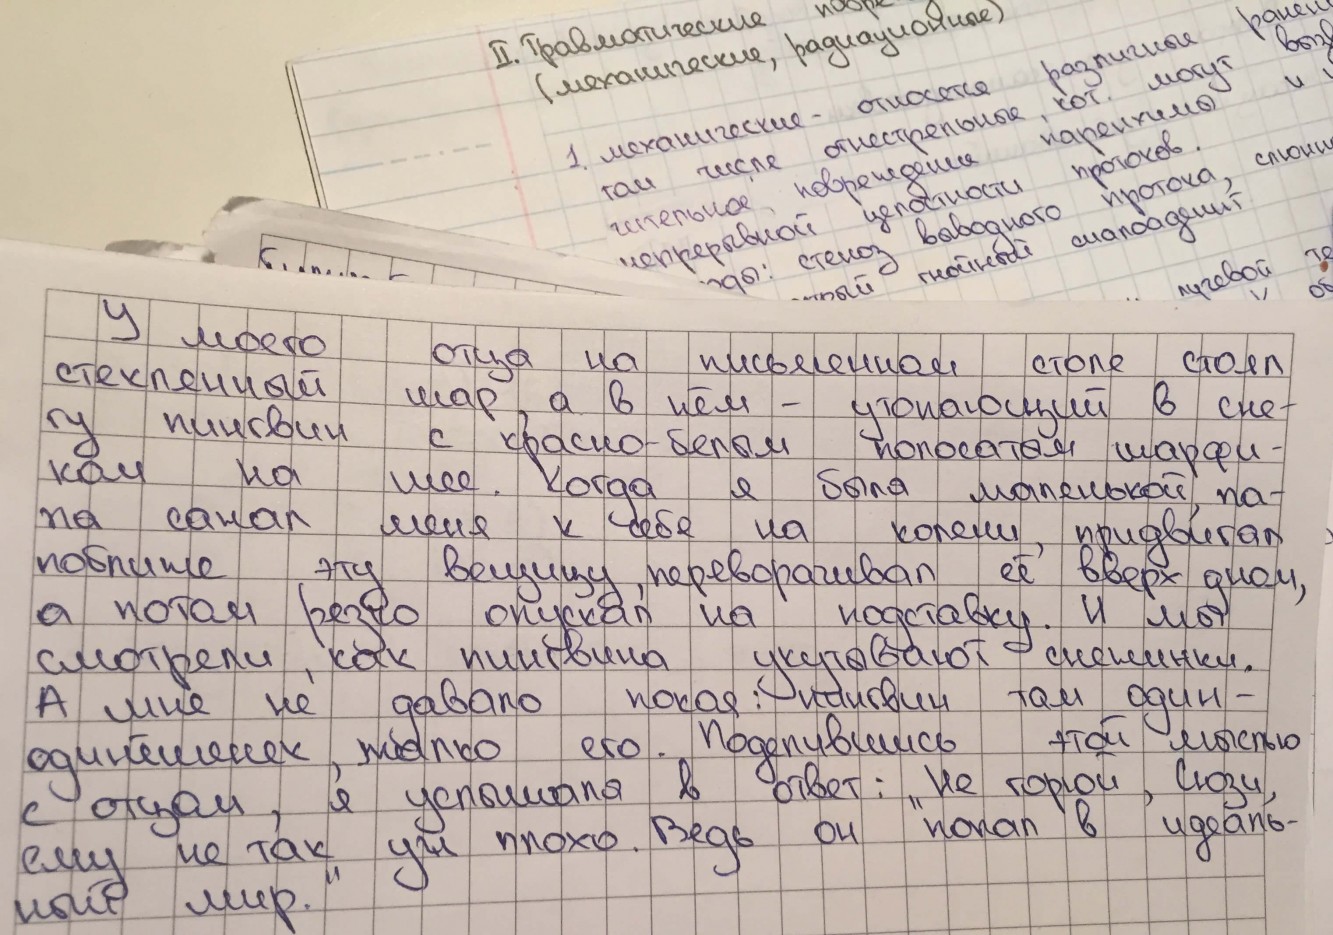 II. Травматические
(механические, радиационные)
1. механические - относятся различные ранен
том числе огнестрельные, кот. могут выз
чительное повреждение паренхимы и
непрерывной целостности протоков.
стеноз выводного протока, слюнн
гнойный сиалоаденит
лучевой
У моего отца на письменном столе стоял
стеклянный шар, а в нём - утопающий в сне-
гу пингвин с красно-белым полосатым шарфи-
ком на шее. Когда я была маленькой, па-
па сажал меня к себе на колени, придвигал
поближе эту вещицу, переворачивал её вверх дном,
а потом резко опускал на подставку. И мы
смотрели, как пингвина укутывают снежинки.
А мне не давало покоя: пингвин там один-
одинёшенек, жалко его. Поделившись этой мыслью
с отцом, я услышала в ответ: „Не горюй, Сюзи,
ему не так уж плохо. Ведь он попал в идеаль-
ный мир."